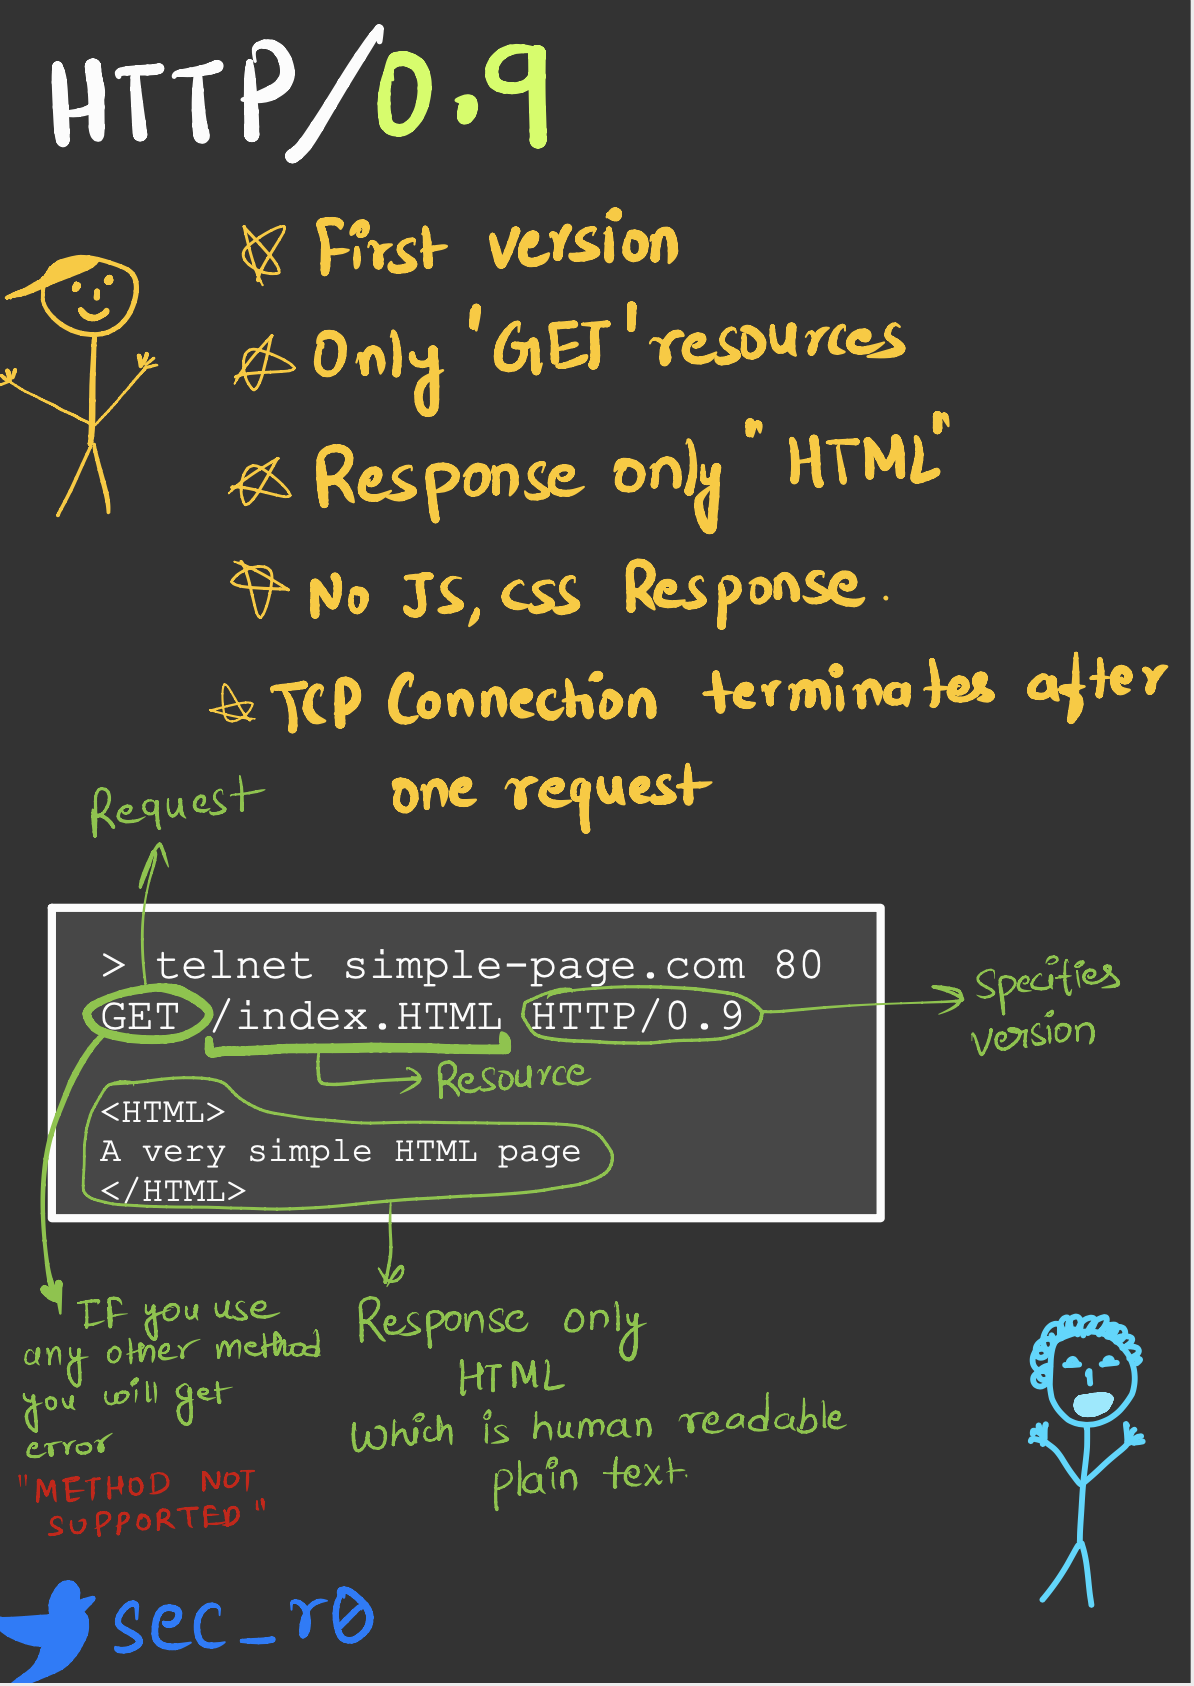 HTTP/0.9
First version
Only 'GET' resources
Response only "HTML"
No JS, CSS Response.
TCP Connection terminates after
one request
Request
> telnet simple-page.com 80
GET /index.HTML HTTP/0.9
Specifies
version
Resource
<HTML>
A very simple HTML page
</HTML>
IF you use
any other method
you will get
error
"METHOD NOT
SUPPORTED"
Response only
HTML
which is human readable
plain text.
sec_r0